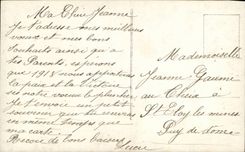 Ma Chère Jeanne
Je t'adresse mes meilleurs
vœux et mes bons
souhaits ainsi qu'a
tes Parents. espérons
que 1918 nous apportera
la paix et la Victoire
ses notre vœux le plus cher
Je t'envoie un petit
souvenir que tu auras
en même temps que
ma carte
Reçois de bons baisers
Lucie
Mademoiselle
Jeanne Gaume
au Cheix à
St Eloy les mines
Puy de Dome